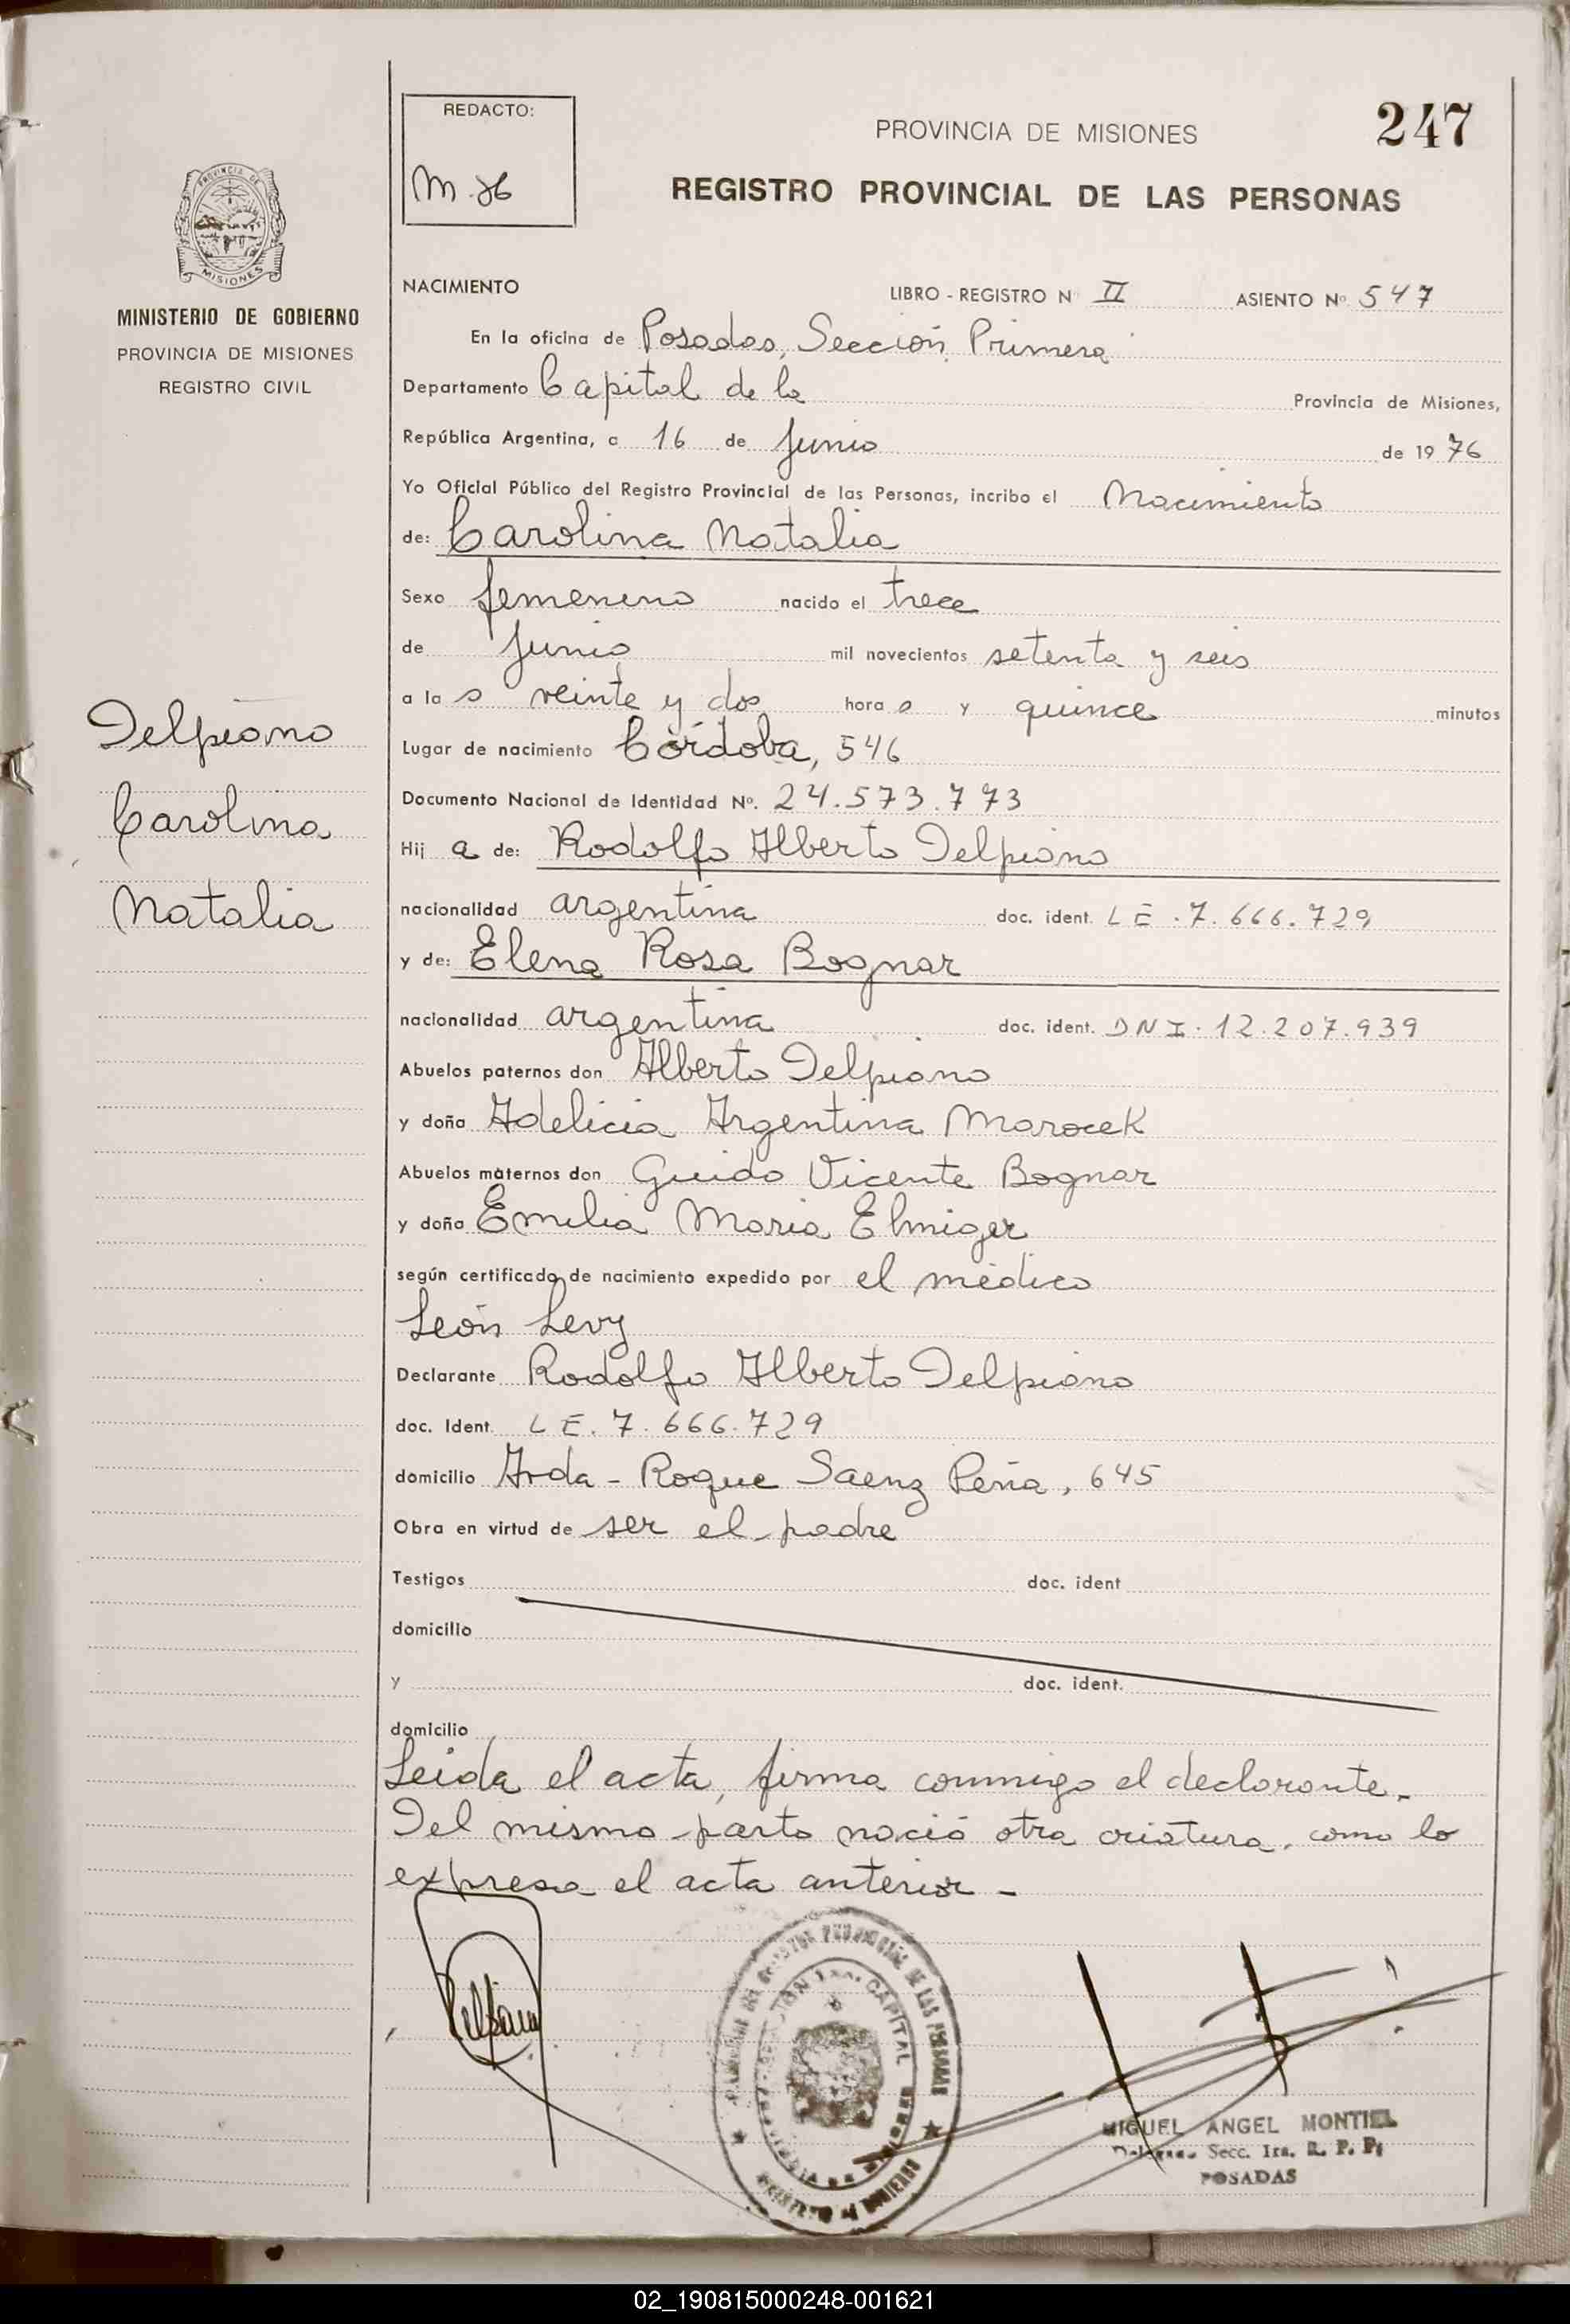 247
REDACTO:
PROVINCIA DE MISIONES
REGISTRO PROVINCIAL DE LAS PERSONAS
PROVINCIA DE
MISIONES
MINISTERIO DE GOBIERNO
PROVINCIA DE MISIONES
REGISTRO CIVIL
Delpiano
Carolina
Natalia
NACIMIENTO LIBRO - REGISTRO Nº II ASIENTO Nº 547
En la oficina de Posadas, Sección Primera
Departamento Capital de la Provincia de Misiones,
República Argentina, a 16 de Junio de 1976
Yo Oficial Público del Registro Provincial de las Personas, incribo el Nacimiento
de: Carolina Natalia
Sexo femenino nacido el trece
de Junio mil novecientos setenta y seis
a las veinte y dos horas y quince minutos
Lugar de nacimiento Córdoba, 546
Documento Nacional de Identidad Nº. 24.573.773
Hija de: Rodolfo Alberto Delpiano
nacionalidad argentina doc. ident. LE.7.666.729
y de: Elena Rosa Bognar
nacionalidad argentina doc. ident. DNI.12.207.939
Abuelos paternos don Alberto Delpiano
y doña Adelicia Argentina Marocek
Abuelos maternos don Guido Vicente Bognar
y doña Emilia Maria Elmiger
según certificado de nacimiento expedido por el médico
León Levy
Declarante Rodolfo Alberto Delpiano
doc. Ident. LE.7.666.729
domicilio Avda - Roque Saenz Peña, 645
Obra en virtud de ser el padre
Testigos doc. ident
domicilio
y doc. ident.
domicilio
Leida el acta, firma conmigo el declarante.
Del mismo parto nació otra criatura, como lo
expresa el acta anterior -
CAPITAL
MIGUEL ANGEL MONTIEL
Secc. 1ra. R. P. P.
POSADAS
02_190815000248-001621